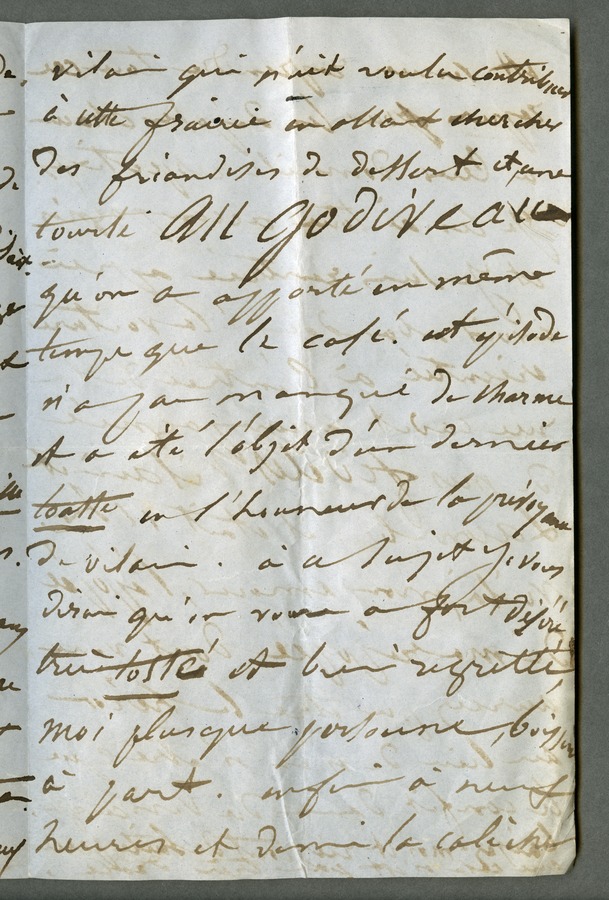 vilain qui avait voulu contribuer
à cette frairie en allant chercher
des friandises de dessert et une
tourte au godiveau
qu'on a apporté en même
temps que le café. cet episode
n'a pas manqué de charme
et a été l'objet d'un dernier
toaste en l'honneur de la prévoyance
de vilain. à ce sujet je vous
dirai qu'on vous a fort désiré
très tosté et bien regretté,
moi plus que personne, boisson
à part. enfin à neuf
heures et demie la calèche